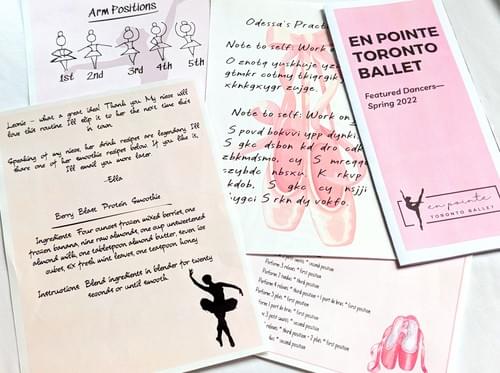 Arm Positions
1st 2nd 3rd 4th 5th
Leonie - what a great idea! Thank you. My niece will
love this routine. I'll slip it to her the next time she's
in town.
Speaking of my niece, her drink recipes are legendary. I'll
share one of her smoothie recipes below. If you like it,
I'll email you more later.
-Ella
Berry Blast Protein Smoothie
Ingredients: Four ounces frozen mixed berries, one
frozen banana, nine raw almonds, one cup unsweetened
almond milk, one tablespoon almond butter, seven ice
cubes, six fresh mint leaves, one teaspoon honey
Instructions: Blend ingredients in blender for twenty
seconds or until smooth.
Odessa's Pract
Note to self: Work
O znotq yuskhuje yz
gtmkr cotmy tkigrgik
xhnkgxygr zujge.
Note to self: Work on
S povd bokvvi ypp dynki
S gkc dsbon kd dro cdk
zbkmdsmo, cy S mreqq
szybdc nbsxu. K rkvp
kdob. S gkc cy nsjji
bygci S rkn dy vokfo.
EN POINTE
TORONTO
BALLET
Featured Dancers—
Spring 2022
en pointe
TORONTO BALLET
second position
Perform 3 releves * first position
Perform 2 tendus * third position
Perform 4 releves * third position + 1 port de bras * first position
Perform 5 plies * first position
form 1 port de bras * first position
3 petit sautes * second position
releves * third position + 2 plies * first position
* second position